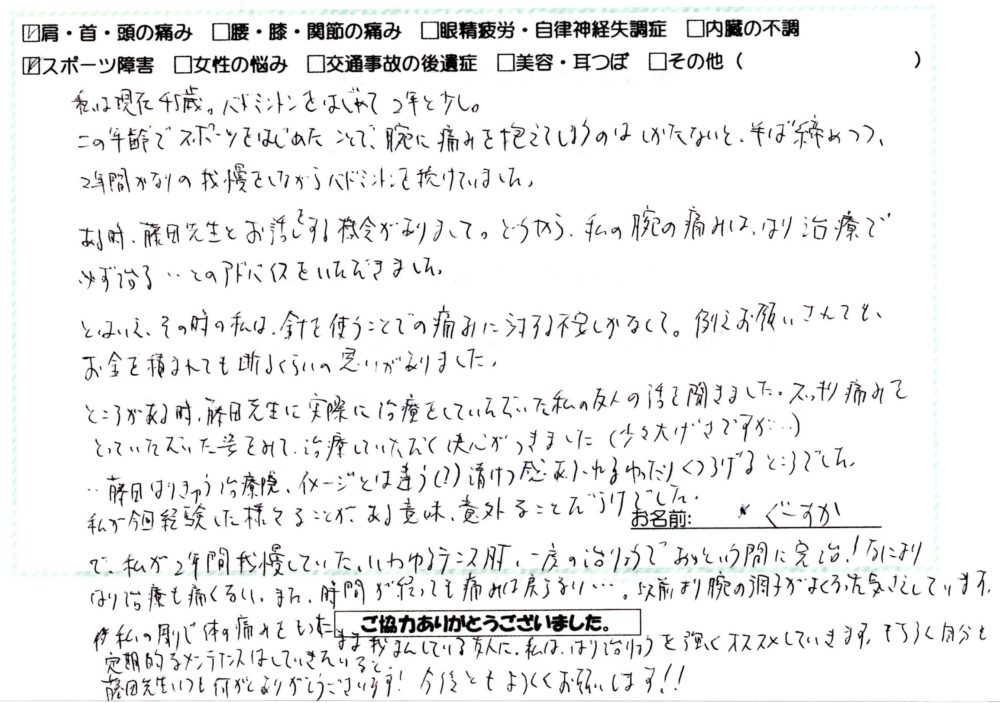 ☑肩・首・頭の痛み □腰・膝・関節の痛み □眼精疲労・自律神経失調症 □内臓の不調
☑スポーツ障害 □女性の悩み □交通事故の後遺症 □美容・耳つぼ □その他（ ）
私は現在45歳。バドミントンをはじめて2年と少し。
この年齢でスポーツをはじめたことで、腕に痛みを抱えてしまうのはしかたないと、半ば諦めつつ、
2年間かなりの我慢をしながらバドミントンを続けていました。
ある時、藤田先生とお話しをする機会がありまして。どうやら、私の腕の痛みは、はり治療で
必ず治る‥とのアドバイスをいただきました。
とはいえ、その時の私は、針を使うことでの痛みに対する不安しかなくて。例えお願いされても、
お金を積まれても断るくらいの思いがありました。
ところがある時、藤田先生に実際に治療をしていただいた私の友人の話を聞きました。スッキリ痛みを
とっていただいた姿をみて、治療していただく決心がつきました（少々大げさですが…）
‥藤田はりきゅう治療院、イメージとは違う(!?)清けつ感あふれるゆったりくつろげるところでした。
私が今回経験した様なことが、ある意味、意外なことだらけでした。
お名前: ぐーすか
で、私が2年間我慢していた、いわゆるテニス肘、一度の治りょうであっという間に完治！なにより
はり治療も痛くない。また、時間が経っても痛みは戻らない…。以前より腕の調子がよくろ元気さしています。
私の周りで体の痛みをもったまま我まんしている友人に、私は、はり治りょうを強くオススメしています。もちろん自分も
ご協力ありがとうございました。
定期的なメンテナンスはしていきたいなと。
藤田先生いつも何かとありがとうございます！今後ともよろしくお願いします!!